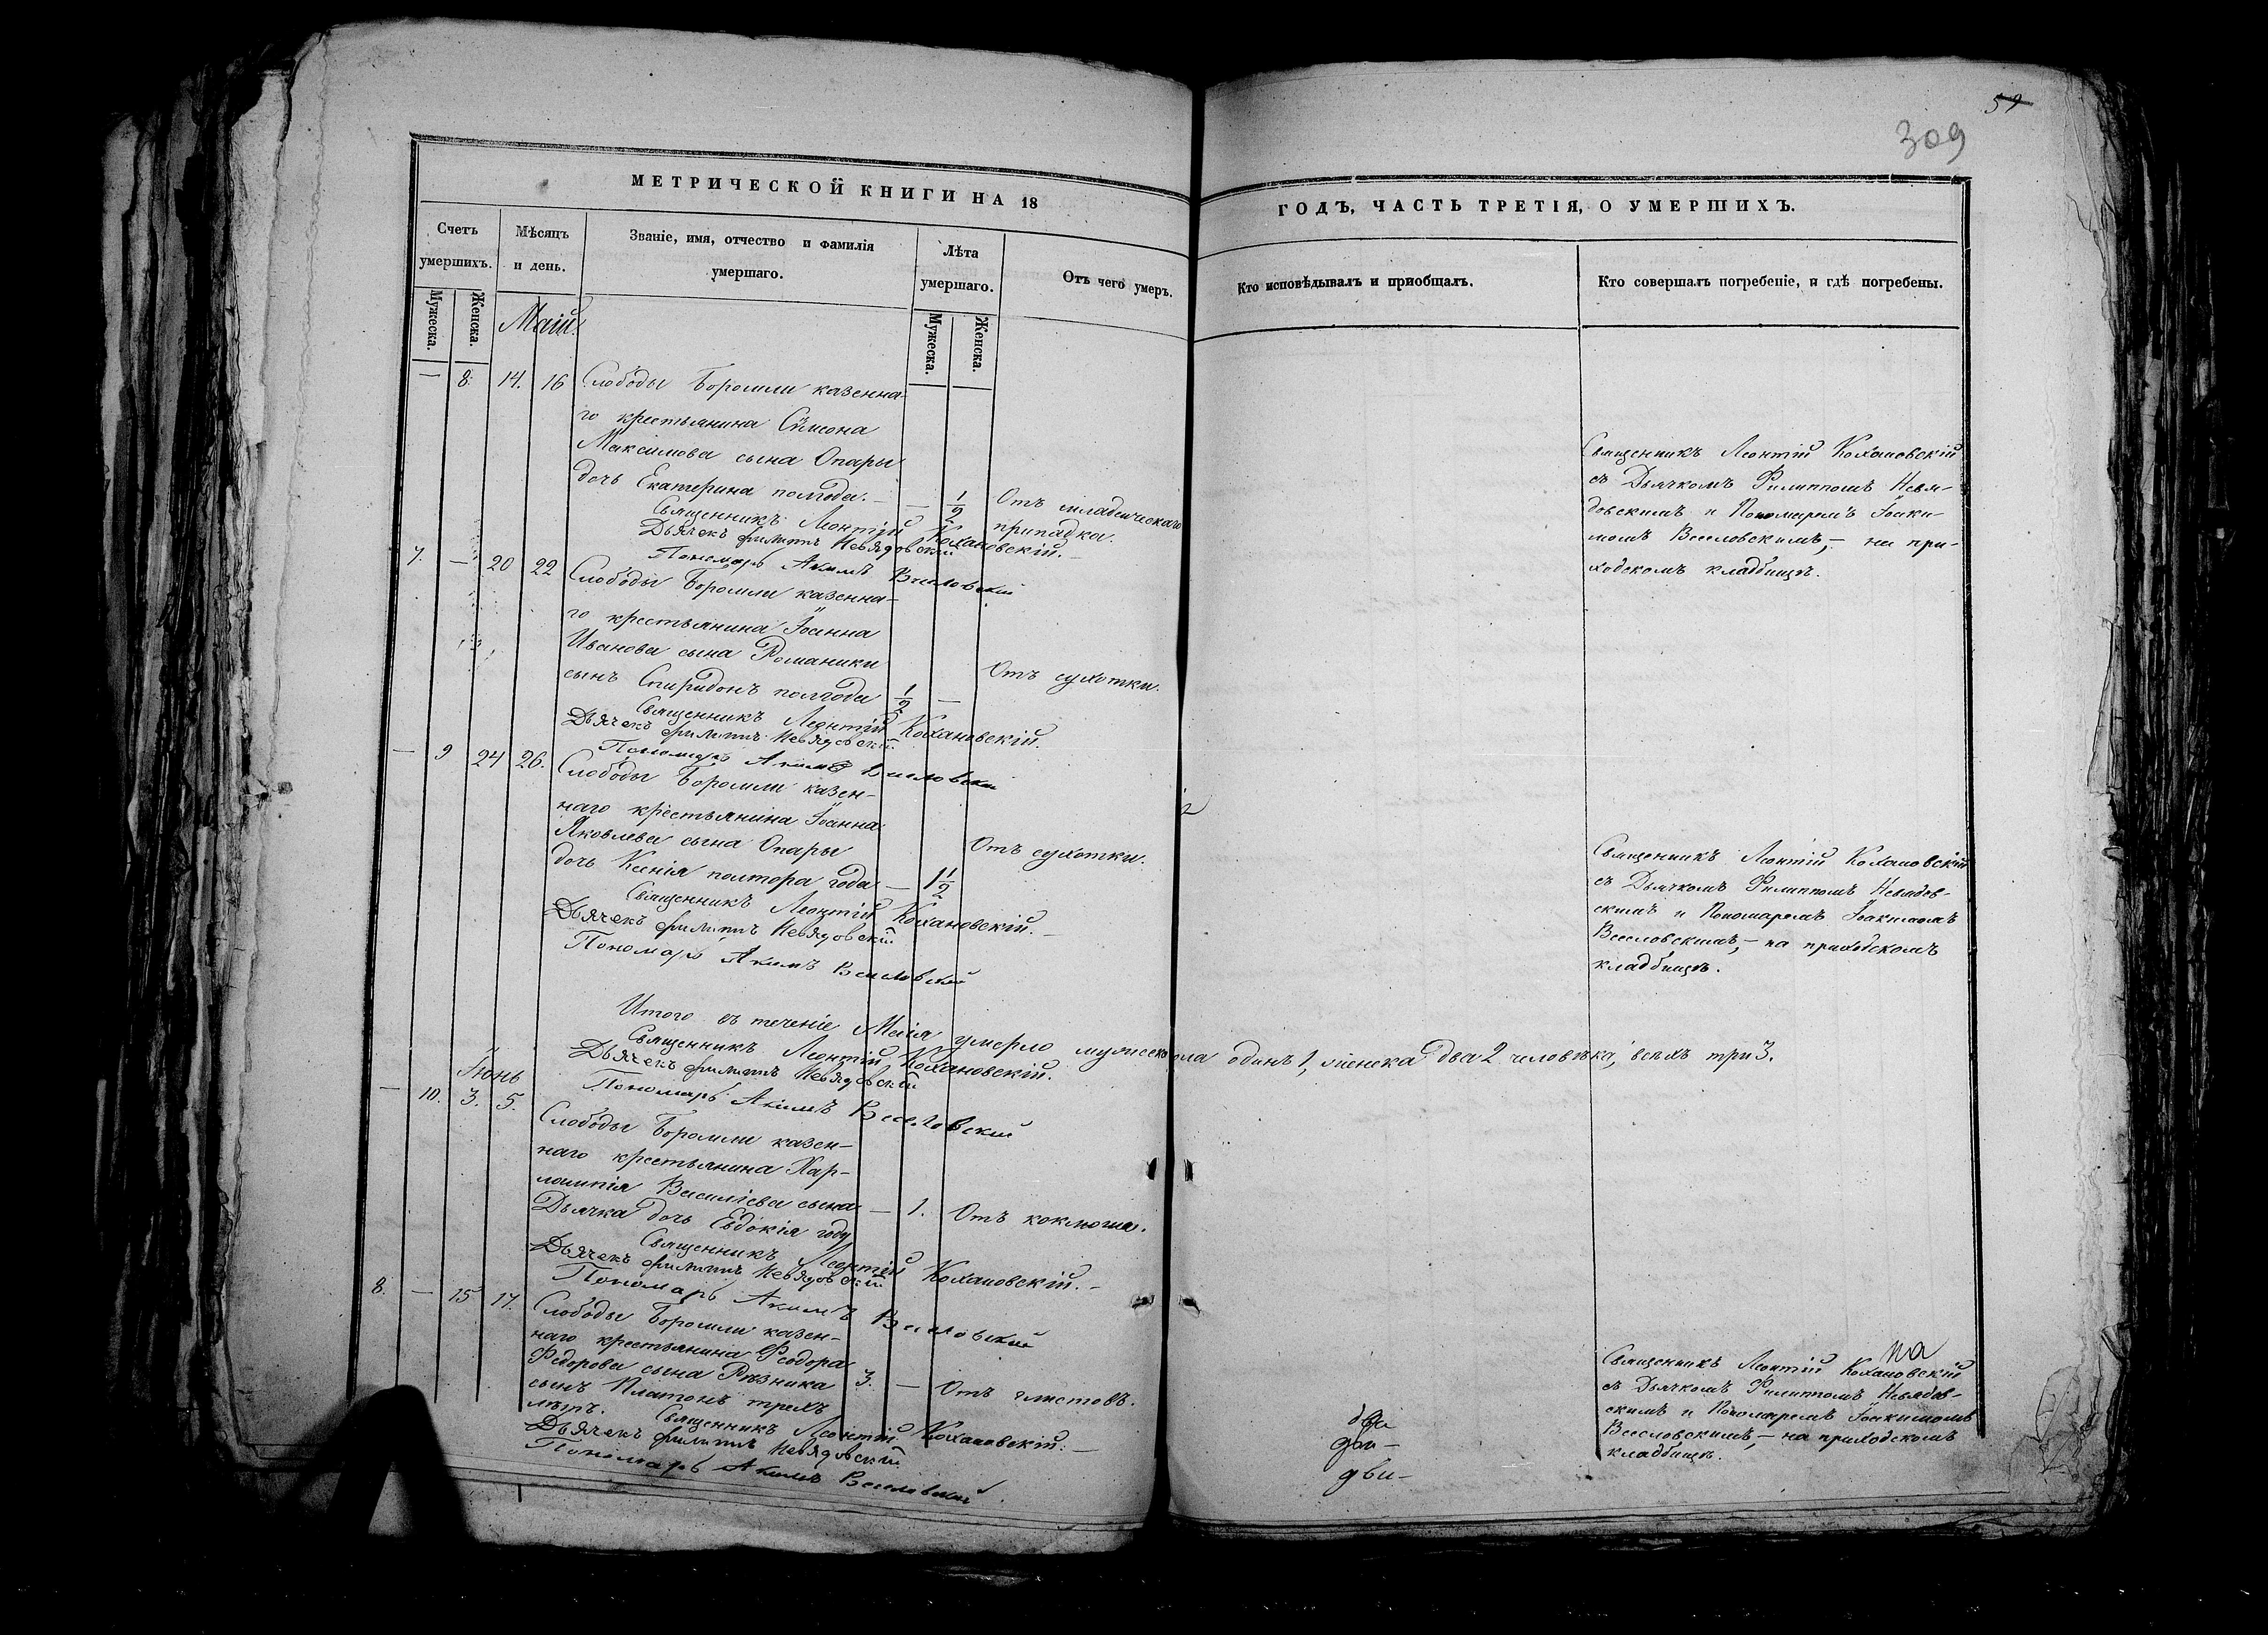 МЕТРИЧЕСКОЙ КНИГИ НА 18
Счетъ умершихъ.
Мѣсяцъ и день.
Званіе, имя, отчество и фамилія умершаго.
Лѣта умершаго.
Отъ чего умеръ.
Мужеска.
Женска.
Мужеска.
Женска.
Маій
— 8. 14. 16 Слободы Боромли казенна-
го крестьянина Сѵмеона
Максимова сына Опары
дочь Екатерина полгода. — — 1/2 Отъ младенческаго
припадка.
Священникъ Леонтій Кохановскій. —
Дьячекъ Филиппъ Невядовскій
Пономарь Акимъ Веселовскій
7. — 20 22 Слободы Боромли казенна-
го крестьянина Іоанна
Иванова сына Романики
сынъ Спиридонъ полгода 1/2 — Отъ сухотки.
Священникъ Леонтій Кохановскій.
Дьячекъ Филиппъ Невядовскій
Пономарь Акимъ Веселовскій
— 9 24 26. Слободы Боромли казен-
наго крестьянина Іоанна
Яковлева сына Опары
дочь Ксенія полтора года — 1 1/2 Отъ сухотки.
Священникъ Леонтій Кохановскій. —
Дьячекъ Филиппъ Невядовскій
Пономарь Акимъ Веселовскій
Итого въ теченіе Маія умерло мужеска пола одинъ 1, женска два 2 человѣка, всѣхъ три 3.
Священникъ Леонтій Кохановскій.
Дьячекъ Филиппъ Невядовскій
Пономарь Акимъ Веселовскій
Іюнь
— 10. 3. 5. Слободы Боромли казен-
наго крестьянина Хар-
лампія Василіева сына
Дьячка дочь Евдокія году — 1. Отъ коклюша.
Священникъ Леонтій Кохановскій. —
Дьячекъ Филиппъ Невядовскій
Пономарь Акимъ Веселовскій
8. — 15 17. Слободы Боромли казен-
наго крестьянина Ѳеодора
Ѳедорова сына Рѣзника
сынъ Платонъ трехъ 3. — Отъ глистовъ.
лѣтъ.
Священникъ Леонтій Кохановскій. —
Дьячекъ Филиппъ Невядовскій
Пономарь Акимъ Веселовскій
59
309
ГОДЪ, ЧАСТЬ ТРЕТІЯ, О УМЕРШИХЪ.
Кто исповѣдывалъ и приобщалъ.
Кто совершалъ погребеніе, и гдѣ погребены.
Священникъ Леонтій Кохановскій
съ Дьячкомъ Филиппомъ Невя-
довскимъ и Пономаремъ Іоаки-
момъ Веселовскимъ, — на при-
ходскомъ кладбищѣ.
Священникъ Леонтій Кохановскій
съ Дьячкомъ Филиппомъ Невядов-
скимъ и Пономаремъ Іоакимомъ
Веселовскимъ, — на приходскомъ
кладбищѣ.
на
Священникъ Леонтій Кохановскій
съ Дьячкомъ Филиппомъ Невядов-
скимъ и Пономаремъ Іоакимомъ
Веселовскимъ, — на приходскомъ
кладбищѣ.